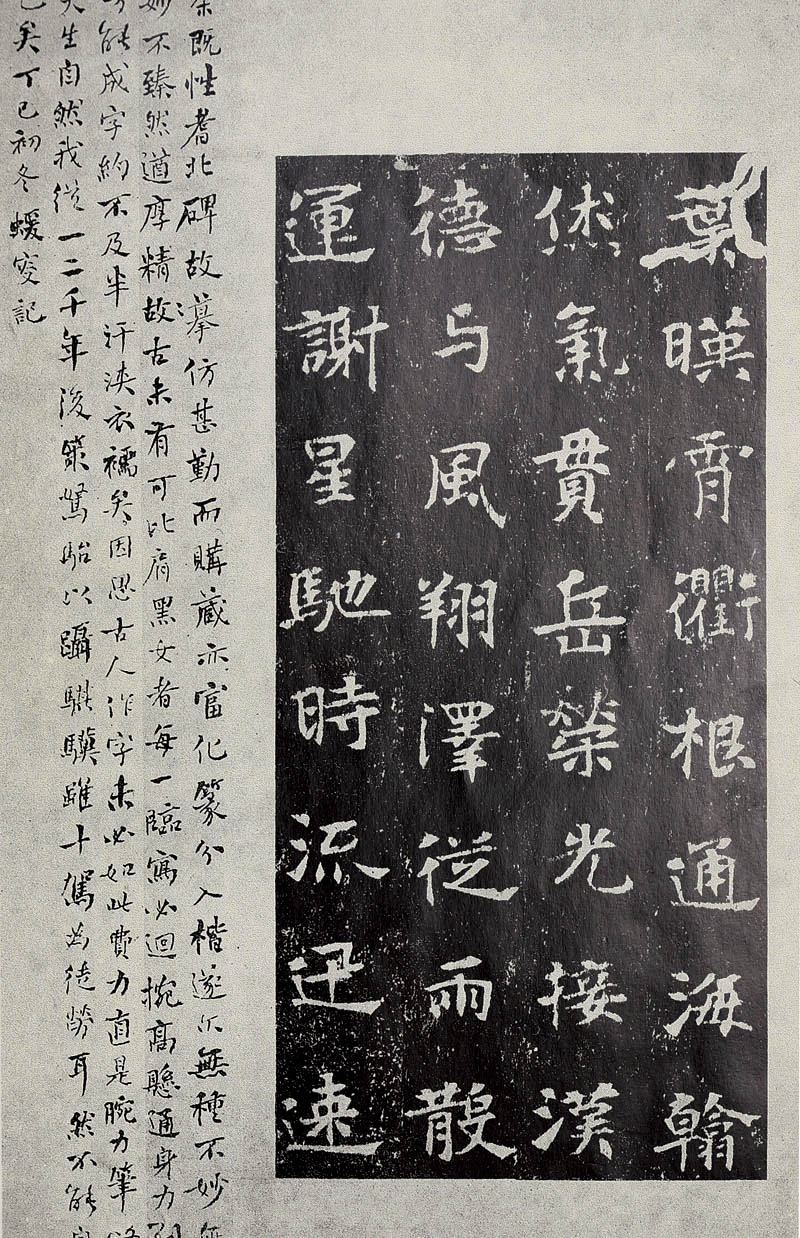 葉暎霄衢根通海翰
烋氣貫岳榮光接漢
德与風翔澤從雨散
運謝星馳時流迅速
余既性耆北碑故摹仿甚勤而購藏亦富化篆分入楷遂尔無種不妙無
妙不臻然遒厚精故古未有可比肩黑女者每一臨寫必迴捥高懸通身力到
能成字約不及半汗浹衣襦矣因思古人作字未必如此費力直是腕力筆
天生自然我從一二千年後策駑駘以躡騏驥雖十駕為徒勞耳然不能自
已矣丁巳初冬蝯叟記